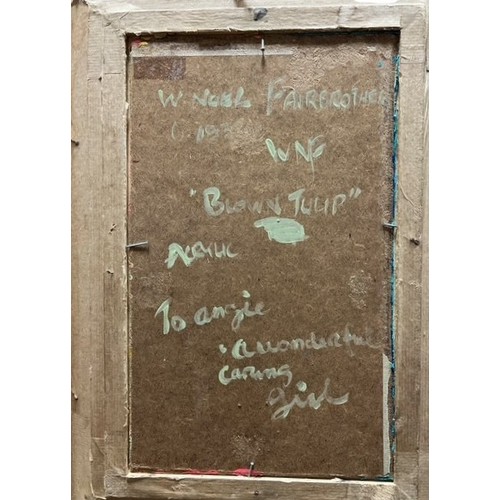 W. NOEL FAIRBROTHER
WNF
"BLOWN TULIP"
ACRYLIC
To angie
a wonderful
caring
girl